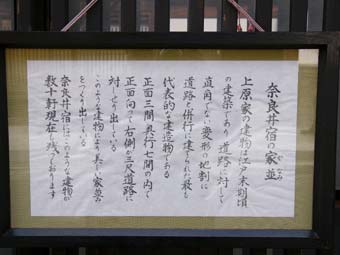 奈良井宿の家並
やなみ
上原家の建物は江戸末期頃
の建築であり 道路に対して
直角でない変形の地割に
道路と併行に建てられた最も
代表的な建造物である
正面三間奥行七間の内で
正面向って右側が三尺道路に
対して出している
このような建物により美しい家並み
をつくり出している
奈良井宿にはこのような建物が
数十軒現在も残っております